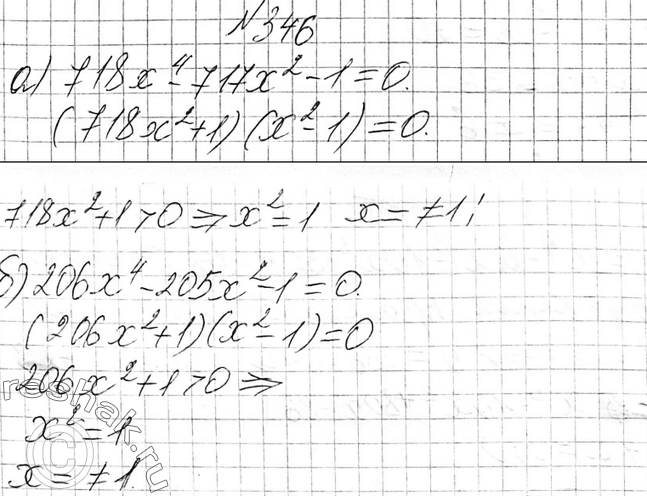 №346
а) 718x⁴-717x²-1=0.
(718x²+1)(x²-1)=0.
718x²+1>0 ⇒ x²=1 x=±1;
б) 206x⁴-205x²-1=0.
(206x²+1)(x²-1)=0
206x²+1>0 ⇒
x²=1
x=±1.
reshak.ru
©